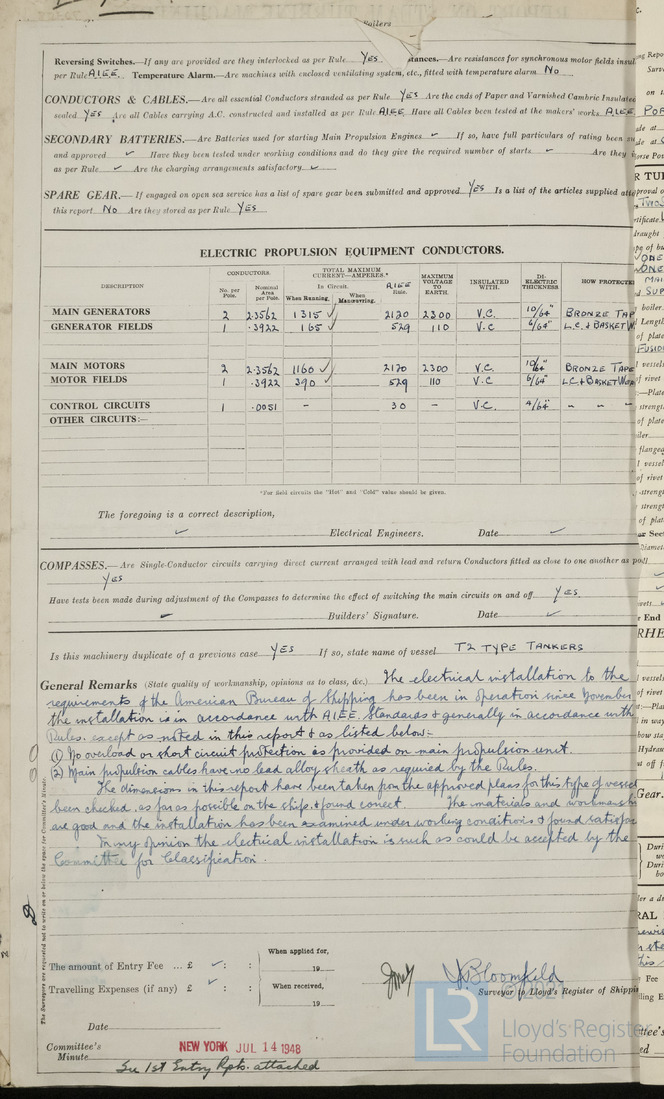 Rollers
Reversing Switches.—If any are provided are they interlocked as per Rule YES stances.—Are resistances for synchronous motor fields insul
per Rule AIEE. Temperature Alarm.—Are machines with enclosed ventilating system, etc., fitted with temperature alarm No
CONDUCTORS & CABLES.—Are all essential Conductors stranded as per Rule YES Are the ends of Paper and Varnished Cambric Insulated
sealed YES Are all Cables carrying A.C. constructed and installed as per Rule AIEE Have all Cables been tested at the makers' works AIEE
SECONDARY BATTERIES.—Are Batteries used for starting Main Propulsion Engines ✓ If so, have full particulars of rating been su
and approved ✓ Have they been tested under working conditions and do they give the required number of starts ✓ Are they
as per Rule ✓ Are the charging arrangements satisfactory ✓
SPARE GEAR.—If engaged on open sea service has a list of spare gear been submitted and approved YES Is a list of the articles supplied atta
this report No Are they stored as per Rule YES
ELECTRIC PROPULSION EQUIPMENT CONDUCTORS.
DESCRIPTION CONDUCTORS. No. per Pole. Nominal Area per Pole. TOTAL MAXIMUM CURRENT—AMPERES.* In Circuit. When Running. When Manœuvring. AIEE Rule. MAXIMUM VOLTAGE TO EARTH. INSULATED WITH. DI-ELECTRIC THICKNESS HOW PROTECTE
MAIN GENERATORS 2 2.3562 1315 ✓ 2120 2300 V.C. 10/64" BRONZE TAP
GENERATOR FIELDS 1 .3922 165 ✓ 529 110 V.C 6/64" L.C. & BASKET W
MAIN MOTORS 2 2.3562 1160 ✓ 2120 2300 V.C. 10/64" BRONZE TAPE
MOTOR FIELDS 1 .3922 390 ✓ 529 110 V.C 6/64" L.C. & BASKET WEA
CONTROL CIRCUITS 1 .0051 – 30 – V.C. 4/64" – – –
OTHER CIRCUITS:—
*For field circuits the "Hot" and "Cold" value should be given.
The foregoing is a correct description,
✓ Electrical Engineers. Date ✓
COMPASSES.—Are Single-Conductor circuits carrying direct current arranged with lead and return Conductors fitted as close to one another as po
YES
Have tests been made during adjustment of the Compasses to determine the effect of switching the main circuits on and off YES
✓ Builders' Signature. Date ✓
Is this machinery duplicate of a previous case YES If so, state name of vessel T2 TYPE TANKERS
General Remarks (State quality of workmanship, opinions as to class, &c.) The electrical installation to the
requirements of the American Bureau of Shipping has been in operation since November
the installation is in accordance with AIEE. Standards & generally in accordance with
Rules, except as noted in this report & as listed below:-
(1) No overload or short circuit protection is provided on main propulsion unit.
(2) Main propulsion cables have no lead alloy sheath as required by the Rules.
The dimensions in this report have been taken from the approved plans for this type of vessel
been checked, as far as possible on the ship, & found correct. The materials and workmansh
are good and the installation has been examined under working conditions & found satisfac
In my opinion the electrical installation is such as could be accepted by the
Committee for Classification.
The Surveyors are requested not to write on or below the space for Committee's Minute.
The amount of Entry Fee ... £ ✓ : :
Travelling Expenses (if any) £ ✓ : :
When applied for,
19
When received,
19
J. Bloomfield
Surveyor to Lloyd's Register of Shippi
© 2021
LR
Lloyd's Register
Foundation
Date
Committee's
Minute
NEW YORK JUL 14 1948
See 1st Entry Rpts. attached